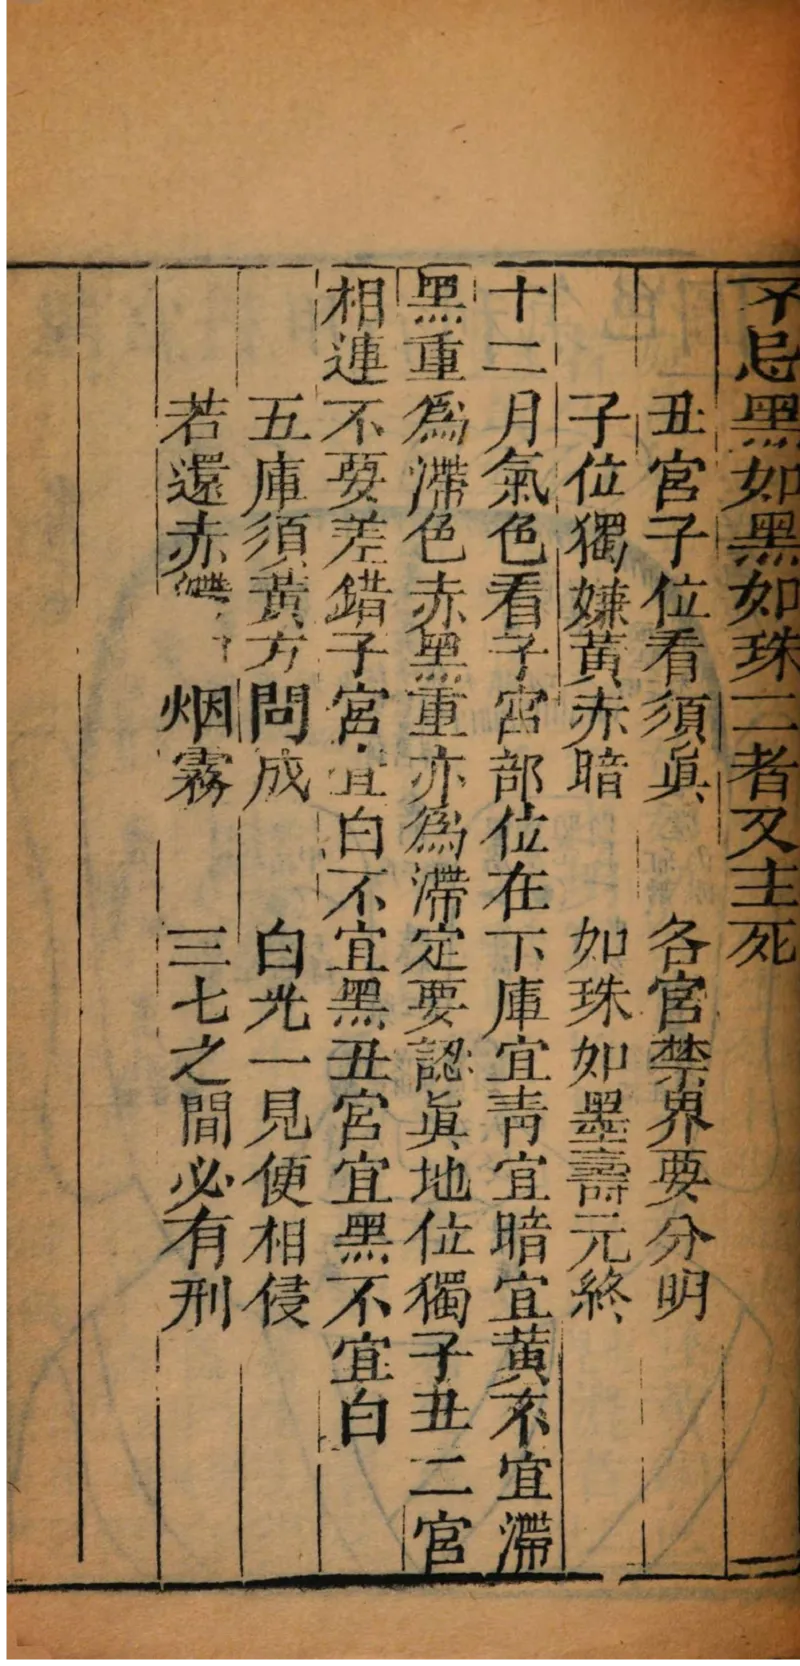 不忌黑如黑如珠二者又主死
丑宮子位看須眞 各宮禁界要分明
子位獨嫌黃赤暗 如珠如墨壽元終
十二月氣色看子宮部位在下庫宜靑宜暗宜黃不宜滯
黑重爲滯色赤黑重亦爲滯定要認眞地位獨子丑二宮
相連不要差錯子宮宜白不宜黑丑宮宜黑不宜白
五庫須黃方問成 白光一見便相侵
若還赤 烟霧 三七之間必有刑